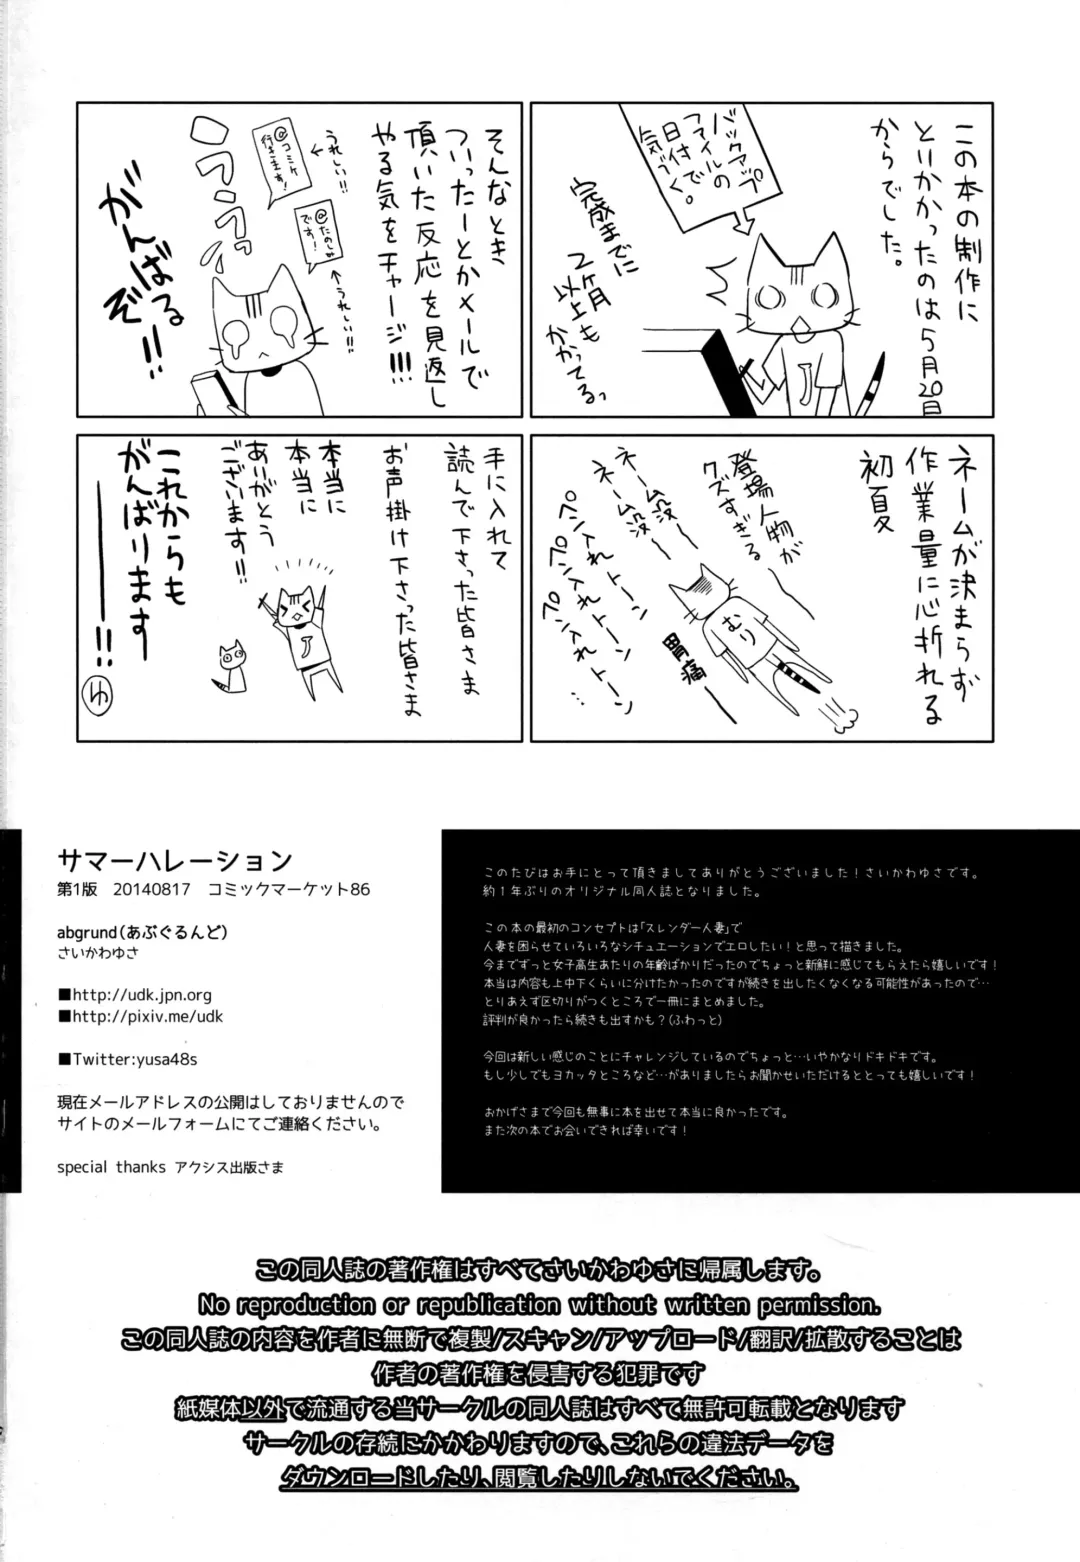 この本の制作に
といかかったのは5月20日
からでした。
バックアップ
ファイルの
日付で
気づく。
完成までに
2ヶ月
以上も
かかってるっ
ネームが決まらず
作業量に心折れる
初夏
登場人物が
クズすぎる
ネーム没ー
ネーム没ー
ペン入れトーン
ペン入れトーン
ペン入れトーン…
むり
胃痛ー
そんなとき
ついったーとかメールで
頂いた反応を見返し
やる気をチャージ!!!
うれしい!!
@コミケ
行きます!
@たのしみ
です!
うれしい!!
ううう…っ
がんばる
ぞ!!
手に入れて
読んで下さった皆さま
お声掛け下さった皆さま
本当に
本当に
ありがとう
ございます!!
J
これからも
がんばります
ーー!!
ゆ
サマーハレーション
第1版 20140817 コミックマーケット86
abgrund(あぶぐるんど)
さいかわゆさ
■http://udk.jpn.org
■http://pixiv.me/udk
■Twitter:yusa48s
現在メールアドレスの公開はしておりませんので
サイトのメールフォームにてご連絡ください。
special thanks アクシス出版さま
このたびはお手にとって頂きましてありがとうございました!さいかわゆさです。
約1年ぶりのオリジナル同人誌となりました。
この本の最初のコンセプトは「スレンダー人妻」で
人妻を困らせていろいろなシチュエーションでエロしたい!と思って描きました。
今までずっと女子高生あたりの年齢ばかりだったのでちょっと新鮮に感じてもらえたら嬉しいです!
本当は内容も上中下くらいに分けたかったのですが続きを出したくなくなる可能性があったので…
とりあえず区切りがつくところで一冊にまとめました。
評判が良かったら続きも出すかも?(ふわっと)
今回は新しい感じのことにチャレンジしているのでちょっと…いやかなりドキドキです。
もし少しでもヨカッタところなど…がありましたらお聞かせいただけるととっても嬉しいです!
おかげさまで今回も無事に本を出せて本当に良かったです。
また次の本でお会いできれば幸いです!
この同人誌の著作権はすべてさいかわゆさに帰属します。
No reproduction or republication without written permission.
この同人誌の内容を作者に無断で複製/スキャン/アップロード/翻訳/拡散することは
作者の著作権を侵害する犯罪です
紙媒体以外で流通する当サークルの同人誌はすべて無許可転載となります
サークルの存続にかかわりますので、これらの違法データを
ダウンロードしたり、閲覧したりしないでください。